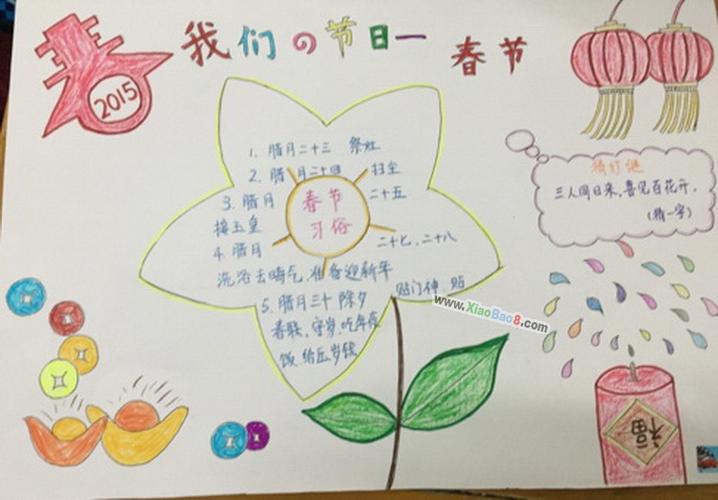 春
2015
我们の节日一 春节
猜灯谜
三人同日来,喜见百花开.
(猜一字)
1. 腊月二十三 祭灶
2. 腊月二十四 扫尘
3. 腊月 二十五
接玉皇
4. 腊月 二十七、二十八
洗浴去晦气,准备迎新年
5. 腊月三十 除夕 贴门神、贴
春联,守岁,吃年夜
饭,给压岁钱
春节
习俗
www.XiaoBao8.com
福